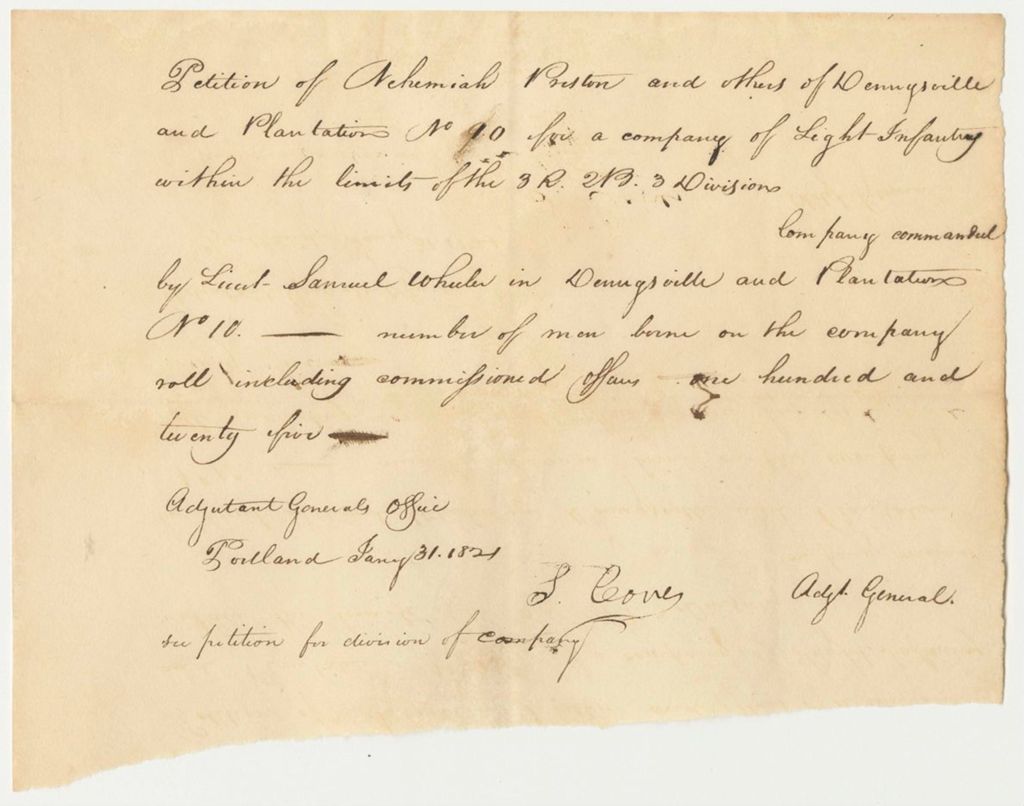 Petition of Nehemiah Preston and others of Dennysville
and Plantation No 10 for a company of Light Infantry
within the limits of the 3 R. 2 B. 3 Division
Company commanded
by Lieut. Samuel Wheeler in Dennysville and Plantation
No 10. — number of men borne on the company
roll including commissioned officers one hundred and
twenty five —
Adjutant Generals Office
Portland Jany 31. 1821
S. Cony Adjt. General.
see petition for division of company